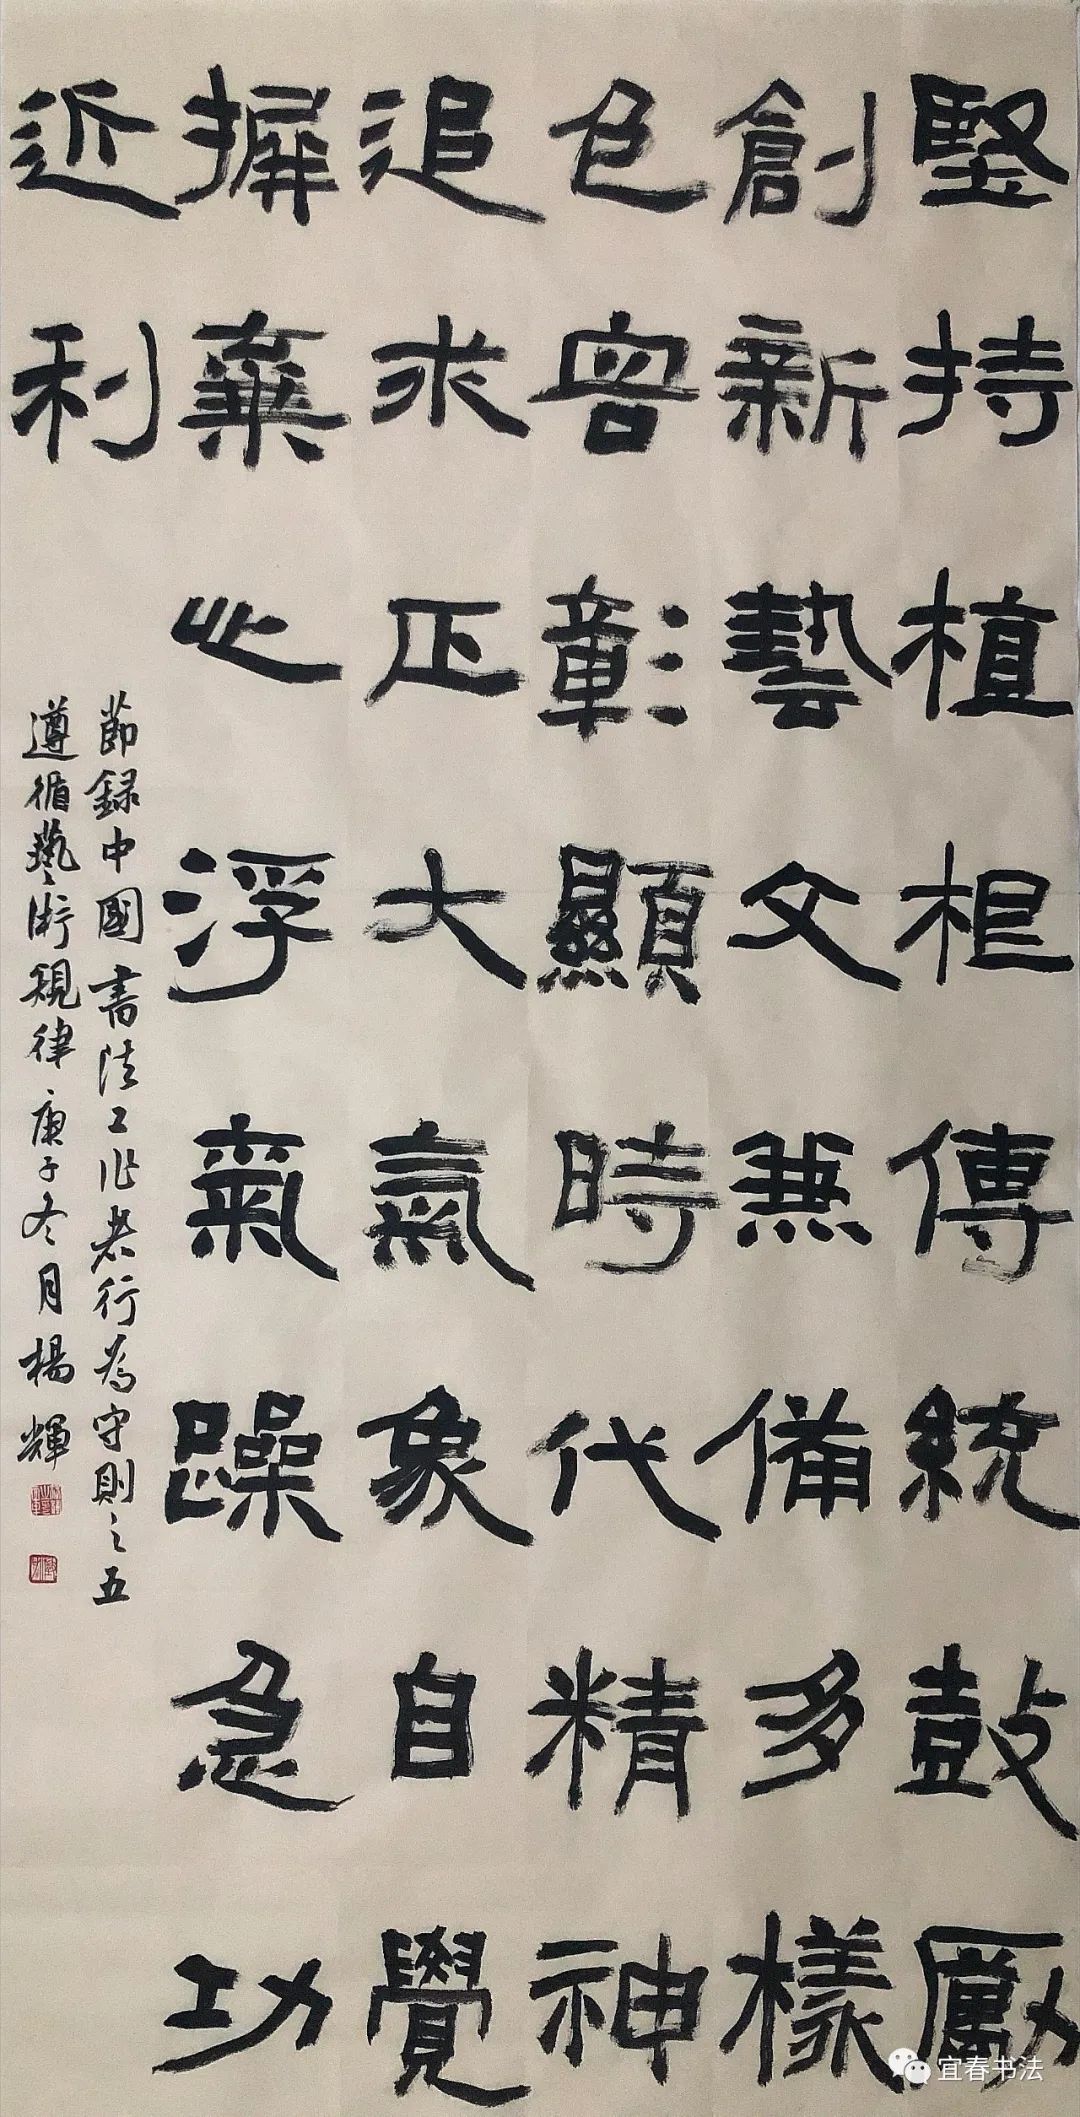 堅持植根傳統鼓勵
創新藝文兼備多樣
包容彰顯時代精神
追求正大氣象自覺
摒棄心浮氣躁急功
近利
節録中國書法工作者行為守則之五
遵循藝術規律庚子冬月楊輝
宜春书法